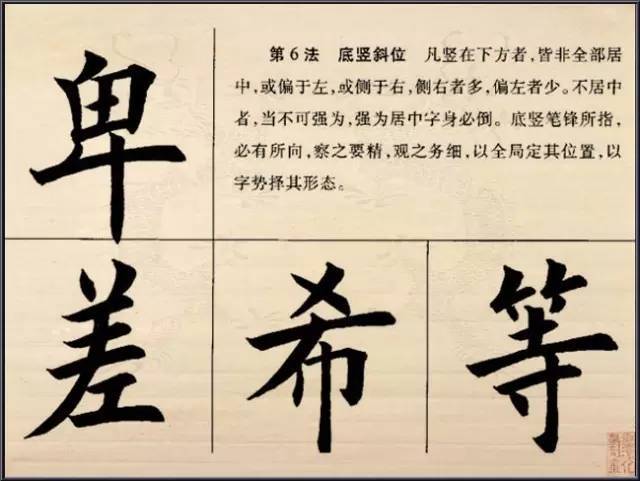 卑
第6法 底竖斜位 凡竖在下方者，皆非全部居
中，或偏于左，或侧于右，侧右者多，偏左者少。不居中
者，当不可强为，强为居中字身必倒。底竖笔锋所指，
必有所向，察之要精，观之务细，以全局定其位置，以
字势择其形态。
差 希 等